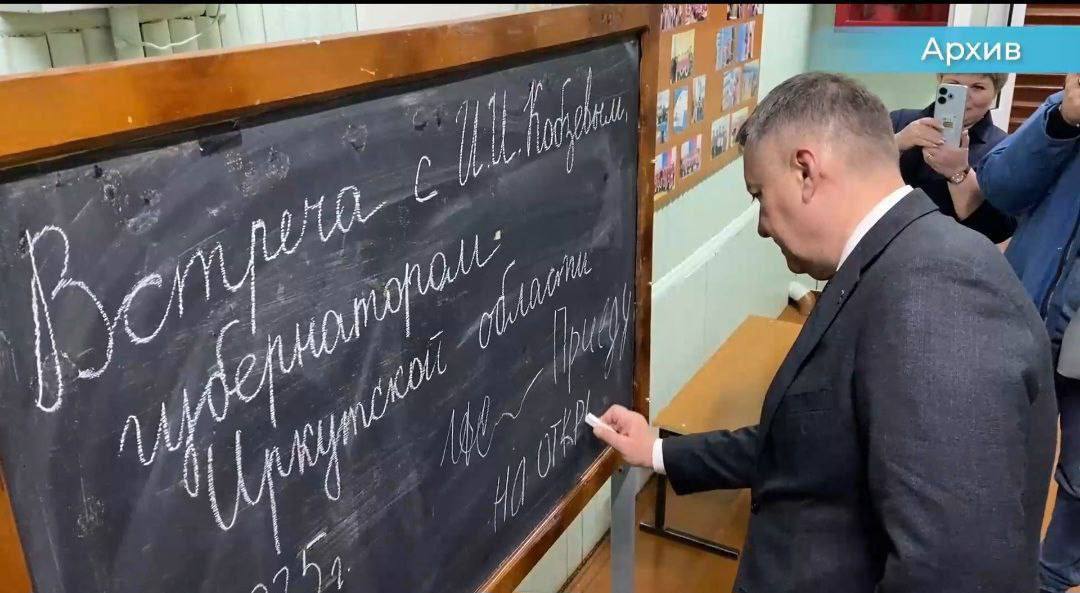 Архив
Встреча с И.И. Кобзевым,
губернатором
Иркутской области
Приеду
на откры
025г.